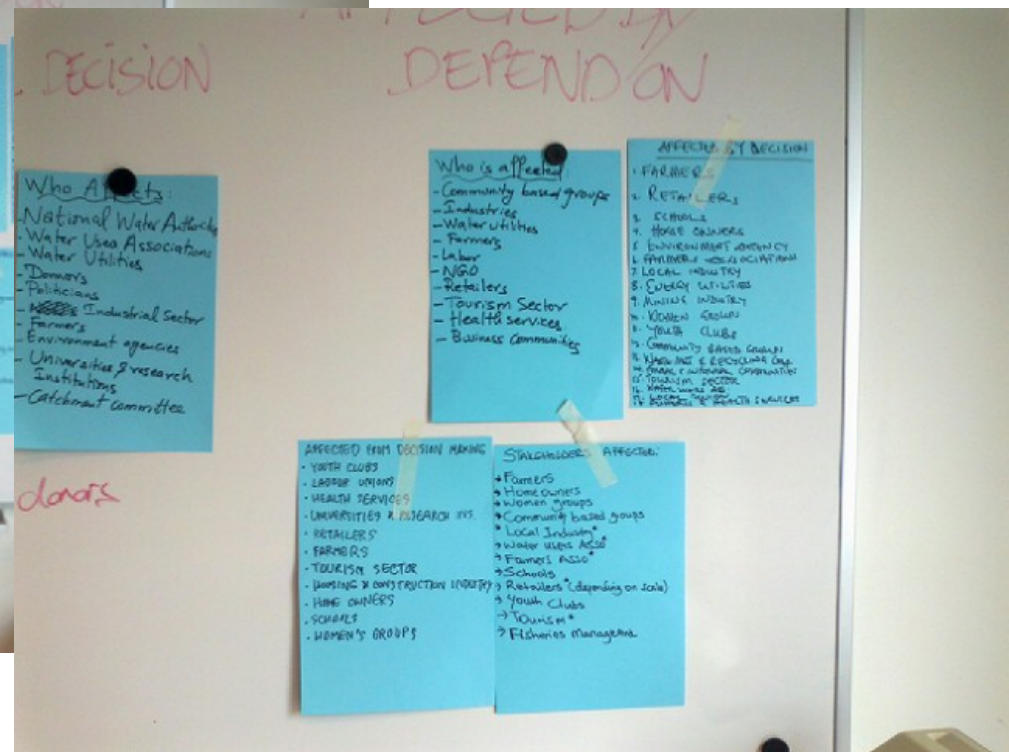 DECISION
AFFECTED BY
DEPEND ON
Who Affects:
- National Water Authority
- Water Uses Associations
- Water Utilities
- Donors
- Politicians
- Industrial Sector
- Farmers
- Environment agencies
- Universities & research
Institutions
- Catchment committee
donors
Who is affected:
- Community based groups
- Industries
- Water utilities
- Farmers
- Labor
- NGO
- Retailers
- Tourism Sector
- Health services
- Business communities
AFFECTED BY DECISION
1. FARMERS
2. RETAILERS
3. SCHOOLS
4. HOUSE OWNERS
5. ENVIRONMENT AGENCY
6. FARMERS ASSOCIATION
7. LOCAL INDUSTRY
8. ENERGY UTILITIES
9. MINING INDUSTRY
10. WOMEN GROUPS
11. YOUTH CLUBS
12. COMMUNITY BASED GROUPS
& RECYCLING
15. TOURISM SECTOR
& HEALTH SERVICES
AFFECTED FROM DECISION MAKING
· YOUTH CLUBS
· LABOUR UNIONS
· HEALTH SERVICES
· UNIVERSITIES & RESEARCH INS.
· RETAILERS
· FARMERS
· TOURISM SECTOR
· HOUSING & CONSTRUCTION INDUSTRY
· HOME OWNERS
· SCHOOLS
· WOMEN'S GROUPS
STAKEHOLDERS AFFECTED:
→ Farmers
→ Homeowners
→ Women groups
→ Community based groups
* Local Industry*
→ Water users Asso*
→ Farmers Asso*
→ Schools
→ Retailers* (depending on scale)
→ Youth Clubs
→ Tourism*
→ Fisheries management